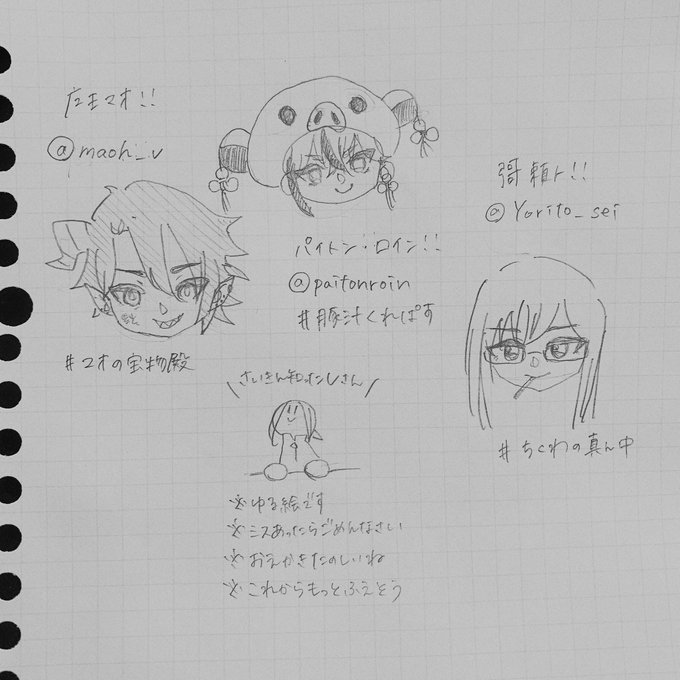 庄王マオ!!
@maoh_v
#マオの宝物殿
パイトン・ロイン!!
@paitonroin
#豚汁くれぱす
彁頼ト!!
@Yorito_sei
#ちくわの真ん中
\さいきん知ったVさん/
※ゆる絵です
※ミスあったらごめんなさい
※おえかきたのしいね
※これからもっとふえそう